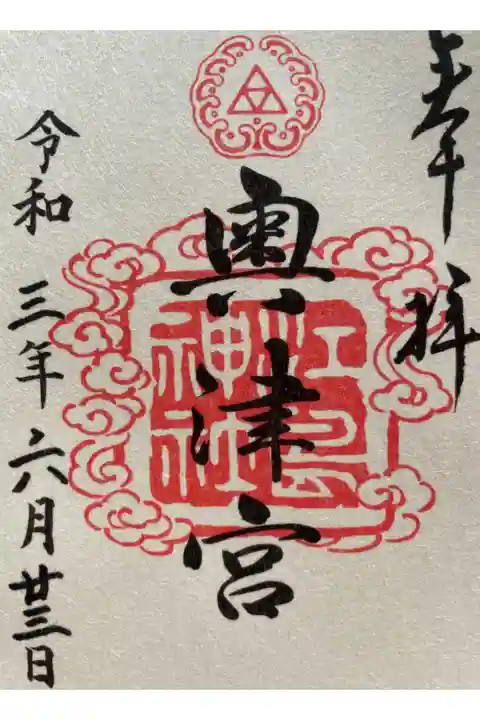 奉拝
奧津宮
江島
神社
令和三年六月廿三日